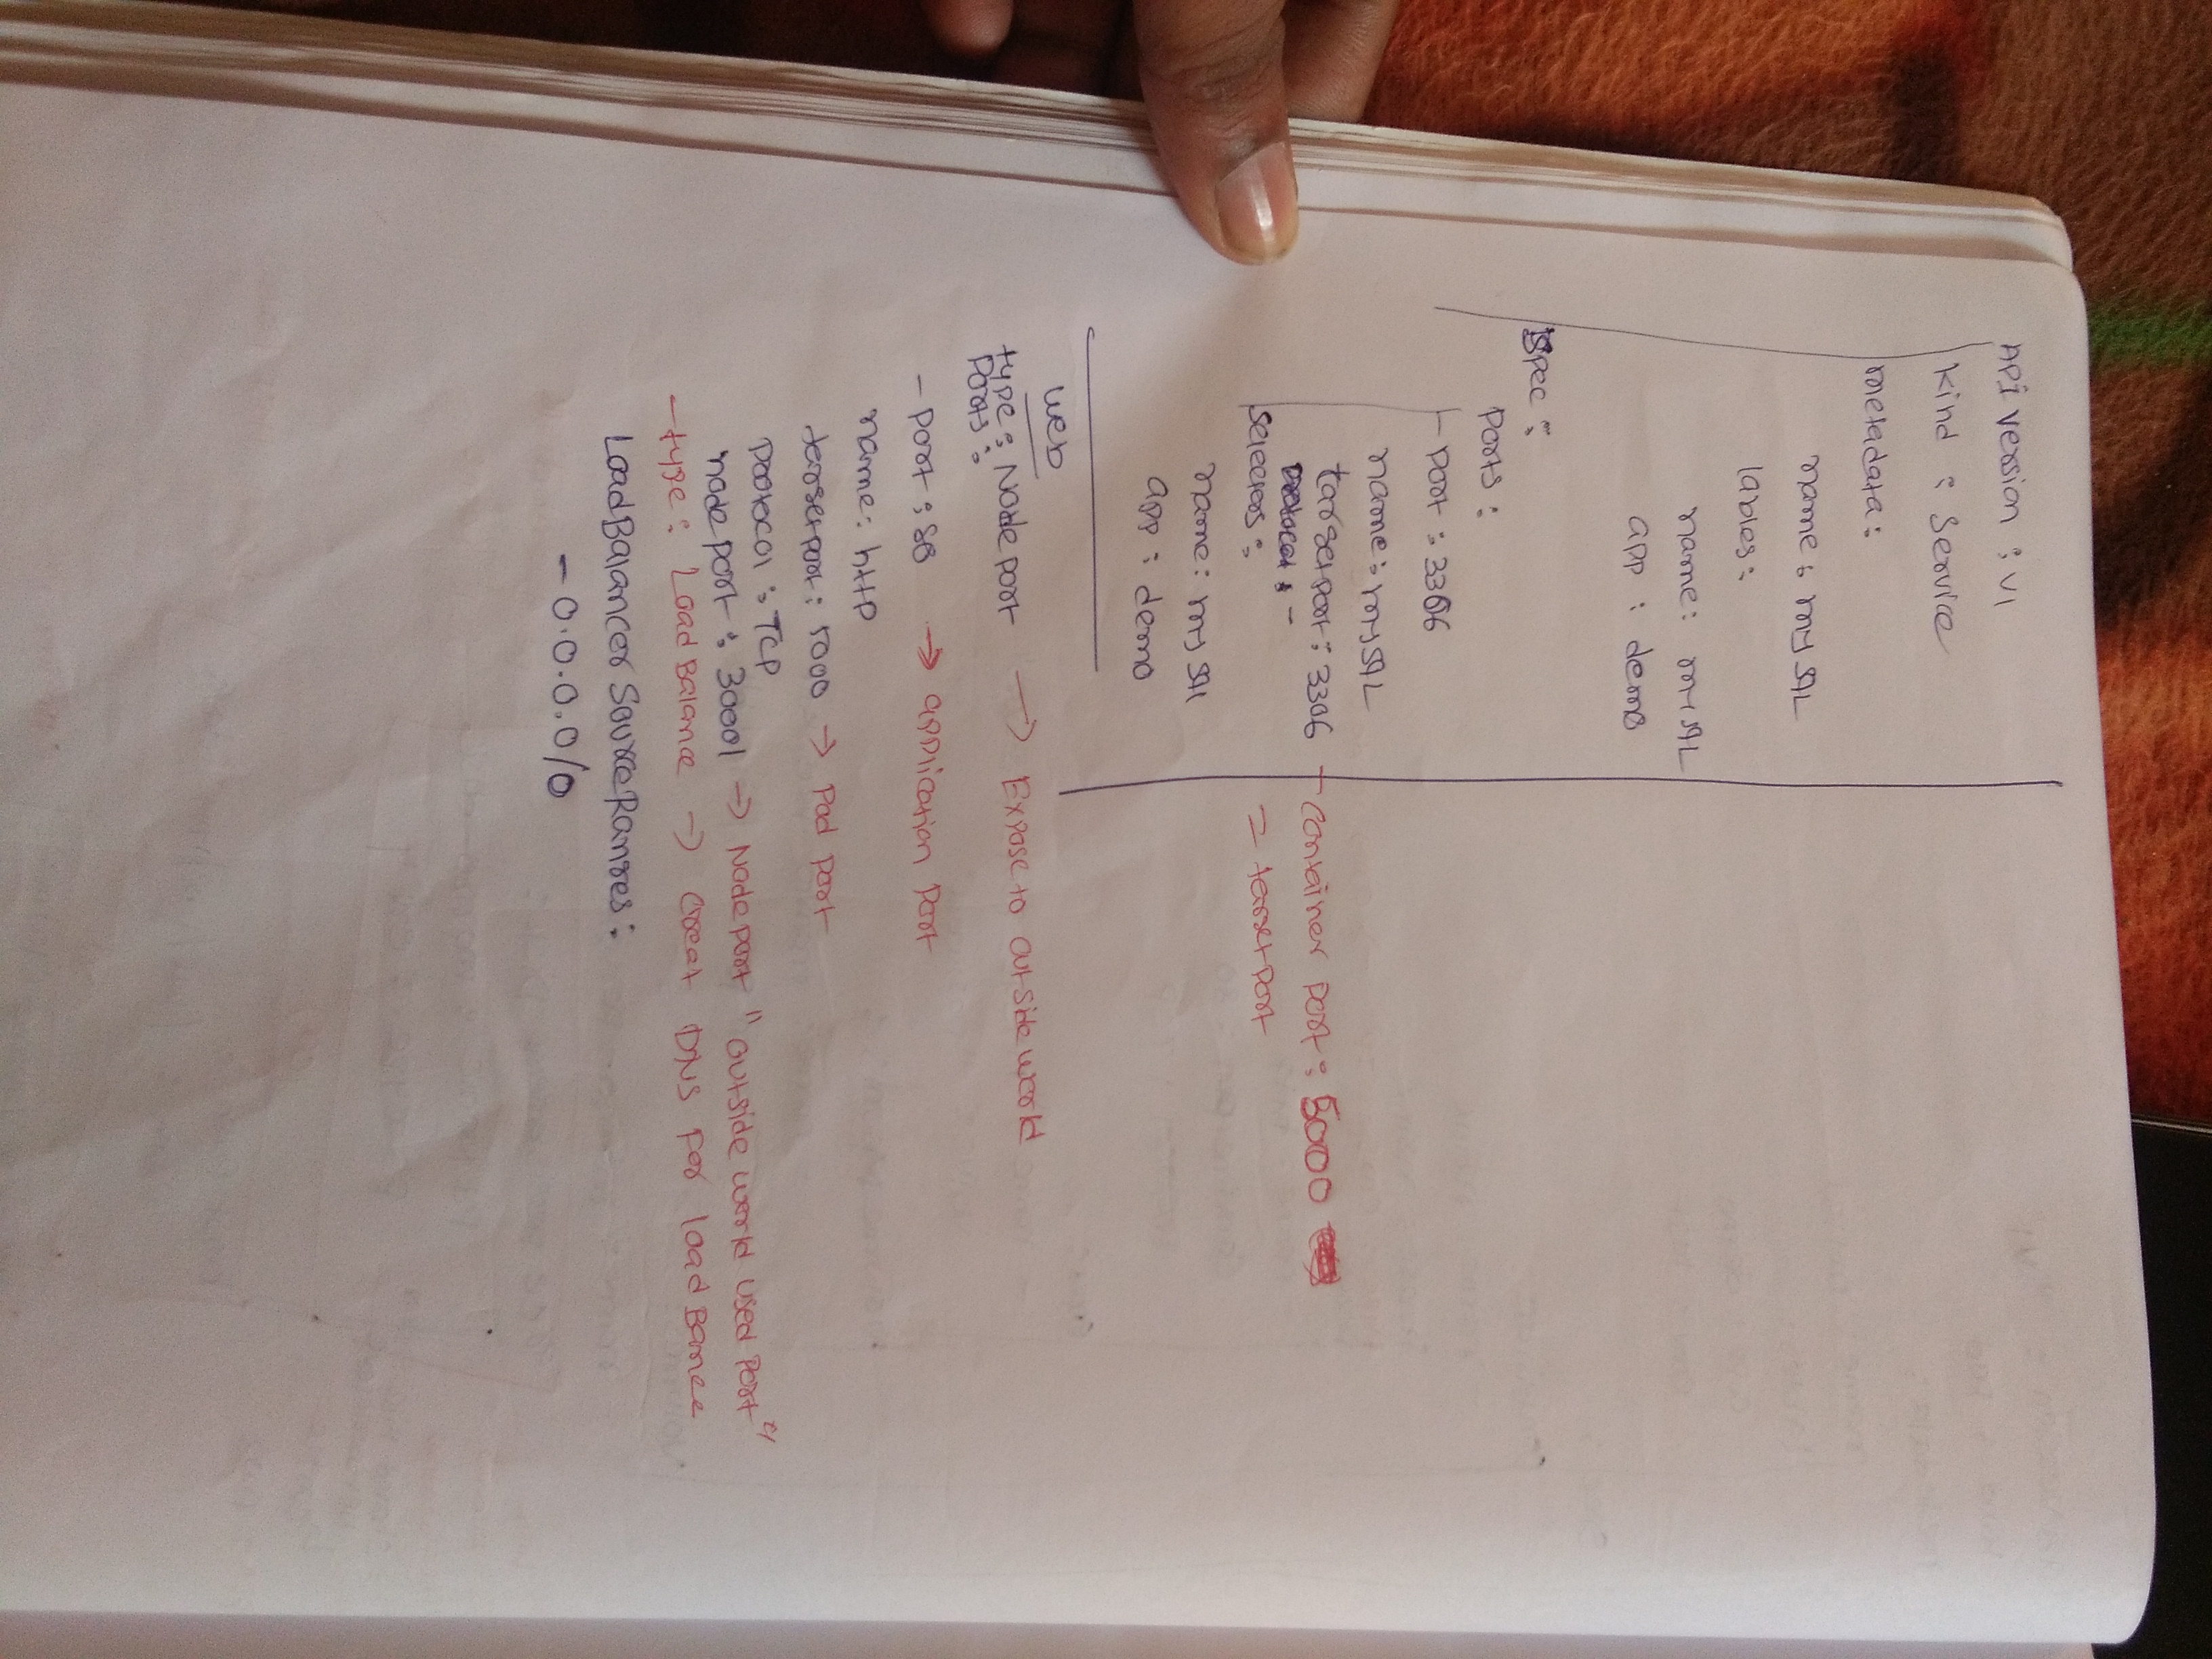 API version : V1
kind : Service
metadata:
name: mysql
lables:
name: mysql
app : demo
spec :
Ports :
- port : 3306
name: mysql
targetport : 3306 - container port : 5000
= targetport
selectors :
name: mysql
app : demo
web
type : Nodeport → Expose to outside world
Ports :
- port : 80 → application port
name: http
targetport : 5000 → Pod port
Protocol : TCP
node port : 30001 → Nodeport "outside world used port"
- type : Load Balance → Creat DNS for load
LoadBalancer SourceRanges :
- 0.0.0.0/0